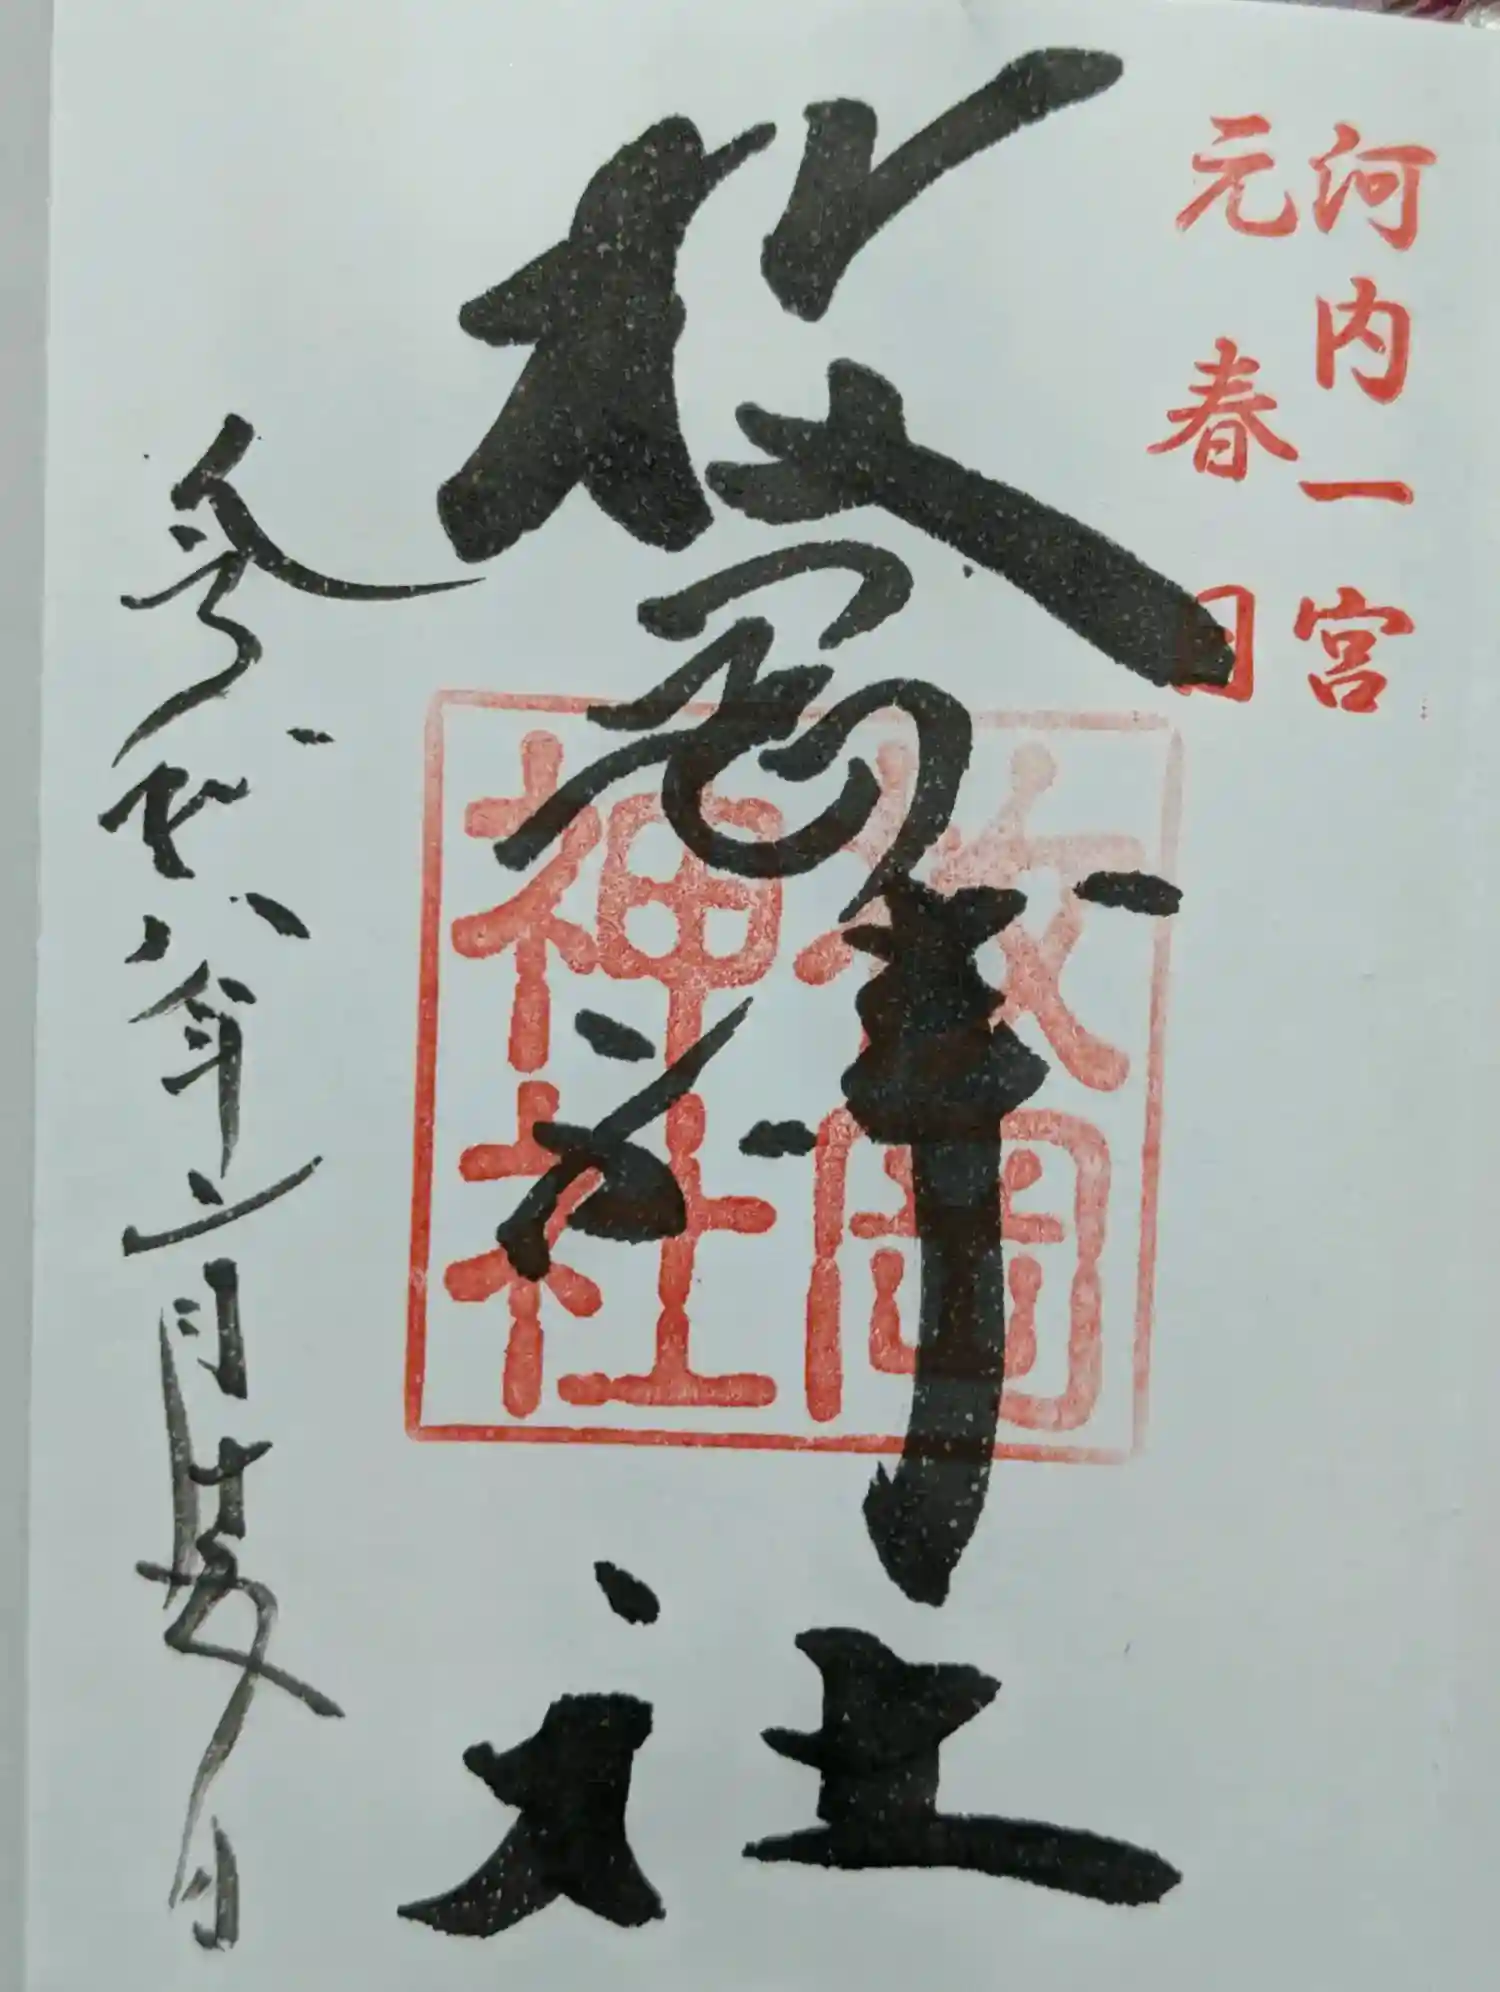 河内一宮
元春日
枚岡神社
枚岡神社
令和八年二月 日